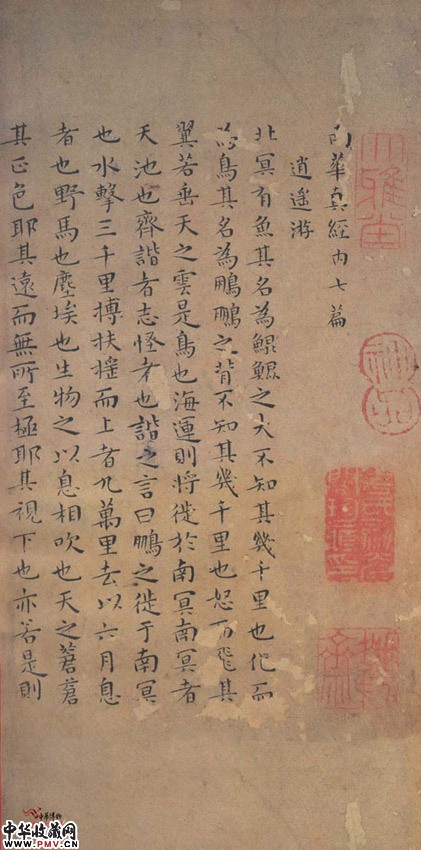 南華真經內七篇
逍遙游
北冥有魚其名為鯤鯤之大不知其幾千里也化而
為鳥其名為鵬鵬之背不知其幾千里也怒而飛其
翼若垂天之雲是鳥也海運則將徙於南冥南冥者
天池也齊諧者志怪者也諧之言曰鵬之徙于南冥
也水擊三千里摶扶搖而上者九萬里去以六月息
者也野馬也塵埃也生物之以息相吹也天之蒼蒼
其正色耶其遠而無所至極耶其視下也亦若是則
神品
中华收藏网
www.PMV.CN